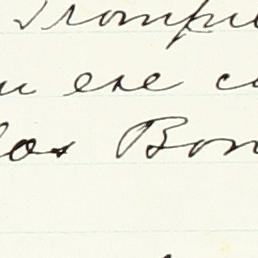 Trompu
u ese c
los Bon